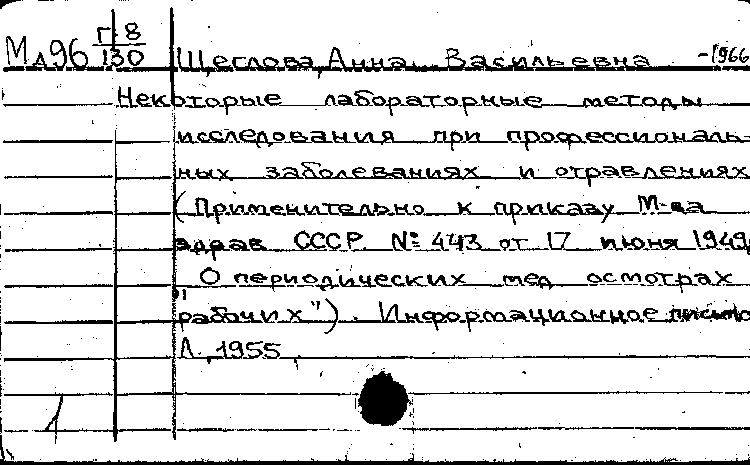 Мл96 Г-8/130 Щеглова, Анна Васильевна -1966
Некоторые лабораторные методы
исследования при профессиональ-
ных заболеваниях и отравлениях
(Применительно к приказу М-ва
здрав СССР № 443 от 17 июня 1949
"О периодических мед осмотрах
рабочих"). Информационное письмо
Л., 1955.
1